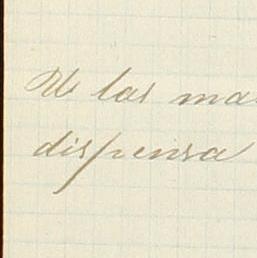 De las ma
dispensa